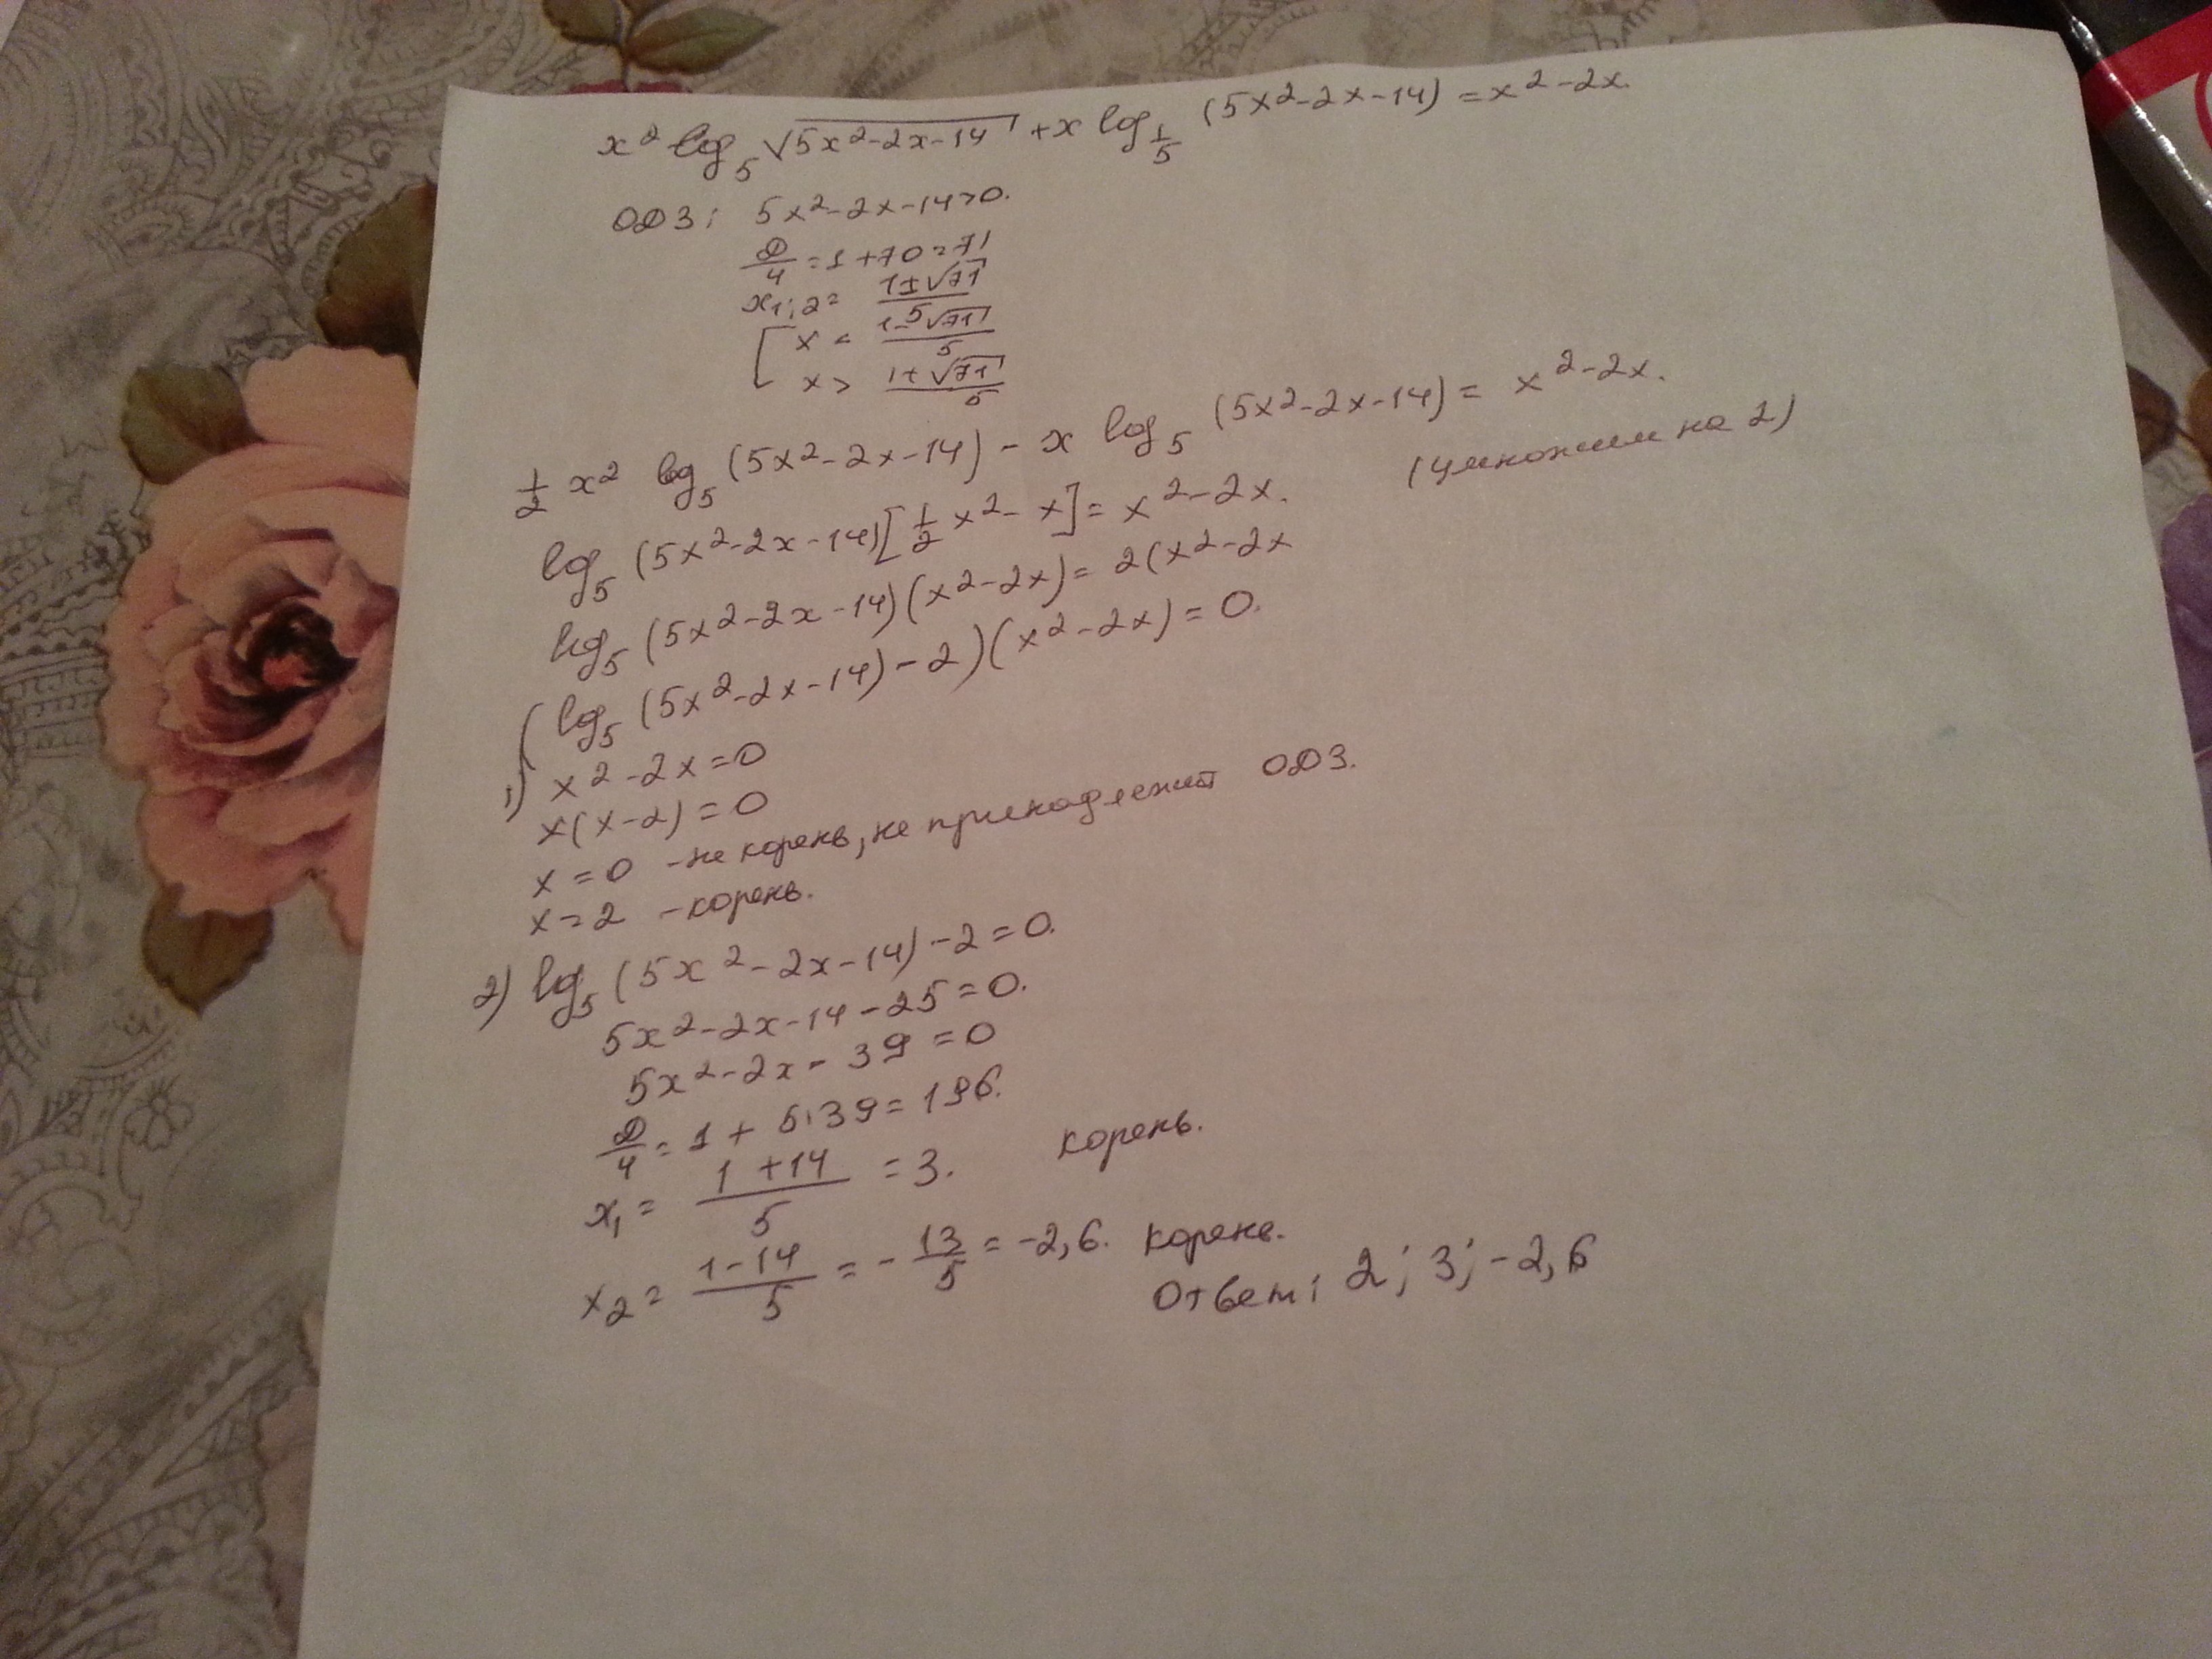 x² log₅ √(5x²-2x-14) + x log_{1/5} (5x²-2x-14) = x²-2x.
ОДЗ: 5x²-2x-14>0.
D/4 = 1+70=71
x₁;₂= (1±√71)/5
[ x < (1-√71)/5
x > (1+√71)/5
1/2 x² log₅ (5x²-2x-14) - x log₅ (5x²-2x-14) = x²-2x.
log₅ (5x²-2x-14)[1/2 x² - x] = x²-2x. (умножим на 2)
log₅ (5x²-2x-14)(x²-2x) = 2(x²-2x
(log₅ (5x²-2x-14) - 2)(x²-2x) = 0.
1) x²-2x=0
x(x-2)=0
x=0 - не корень, не принадлежит ОДЗ.
x=2 - корень.
2) log₅ (5x²-2x-14) -2=0.
5x²-2x-14-25=0.
5x²-2x-39=0
D/4 = 1 + 5·39=196.
x₁ = (1+14)/5 = 3. корень.
x₂ = (1-14)/5 = -13/5 = -2,6. корень.
Ответ: 2; 3; -2,6